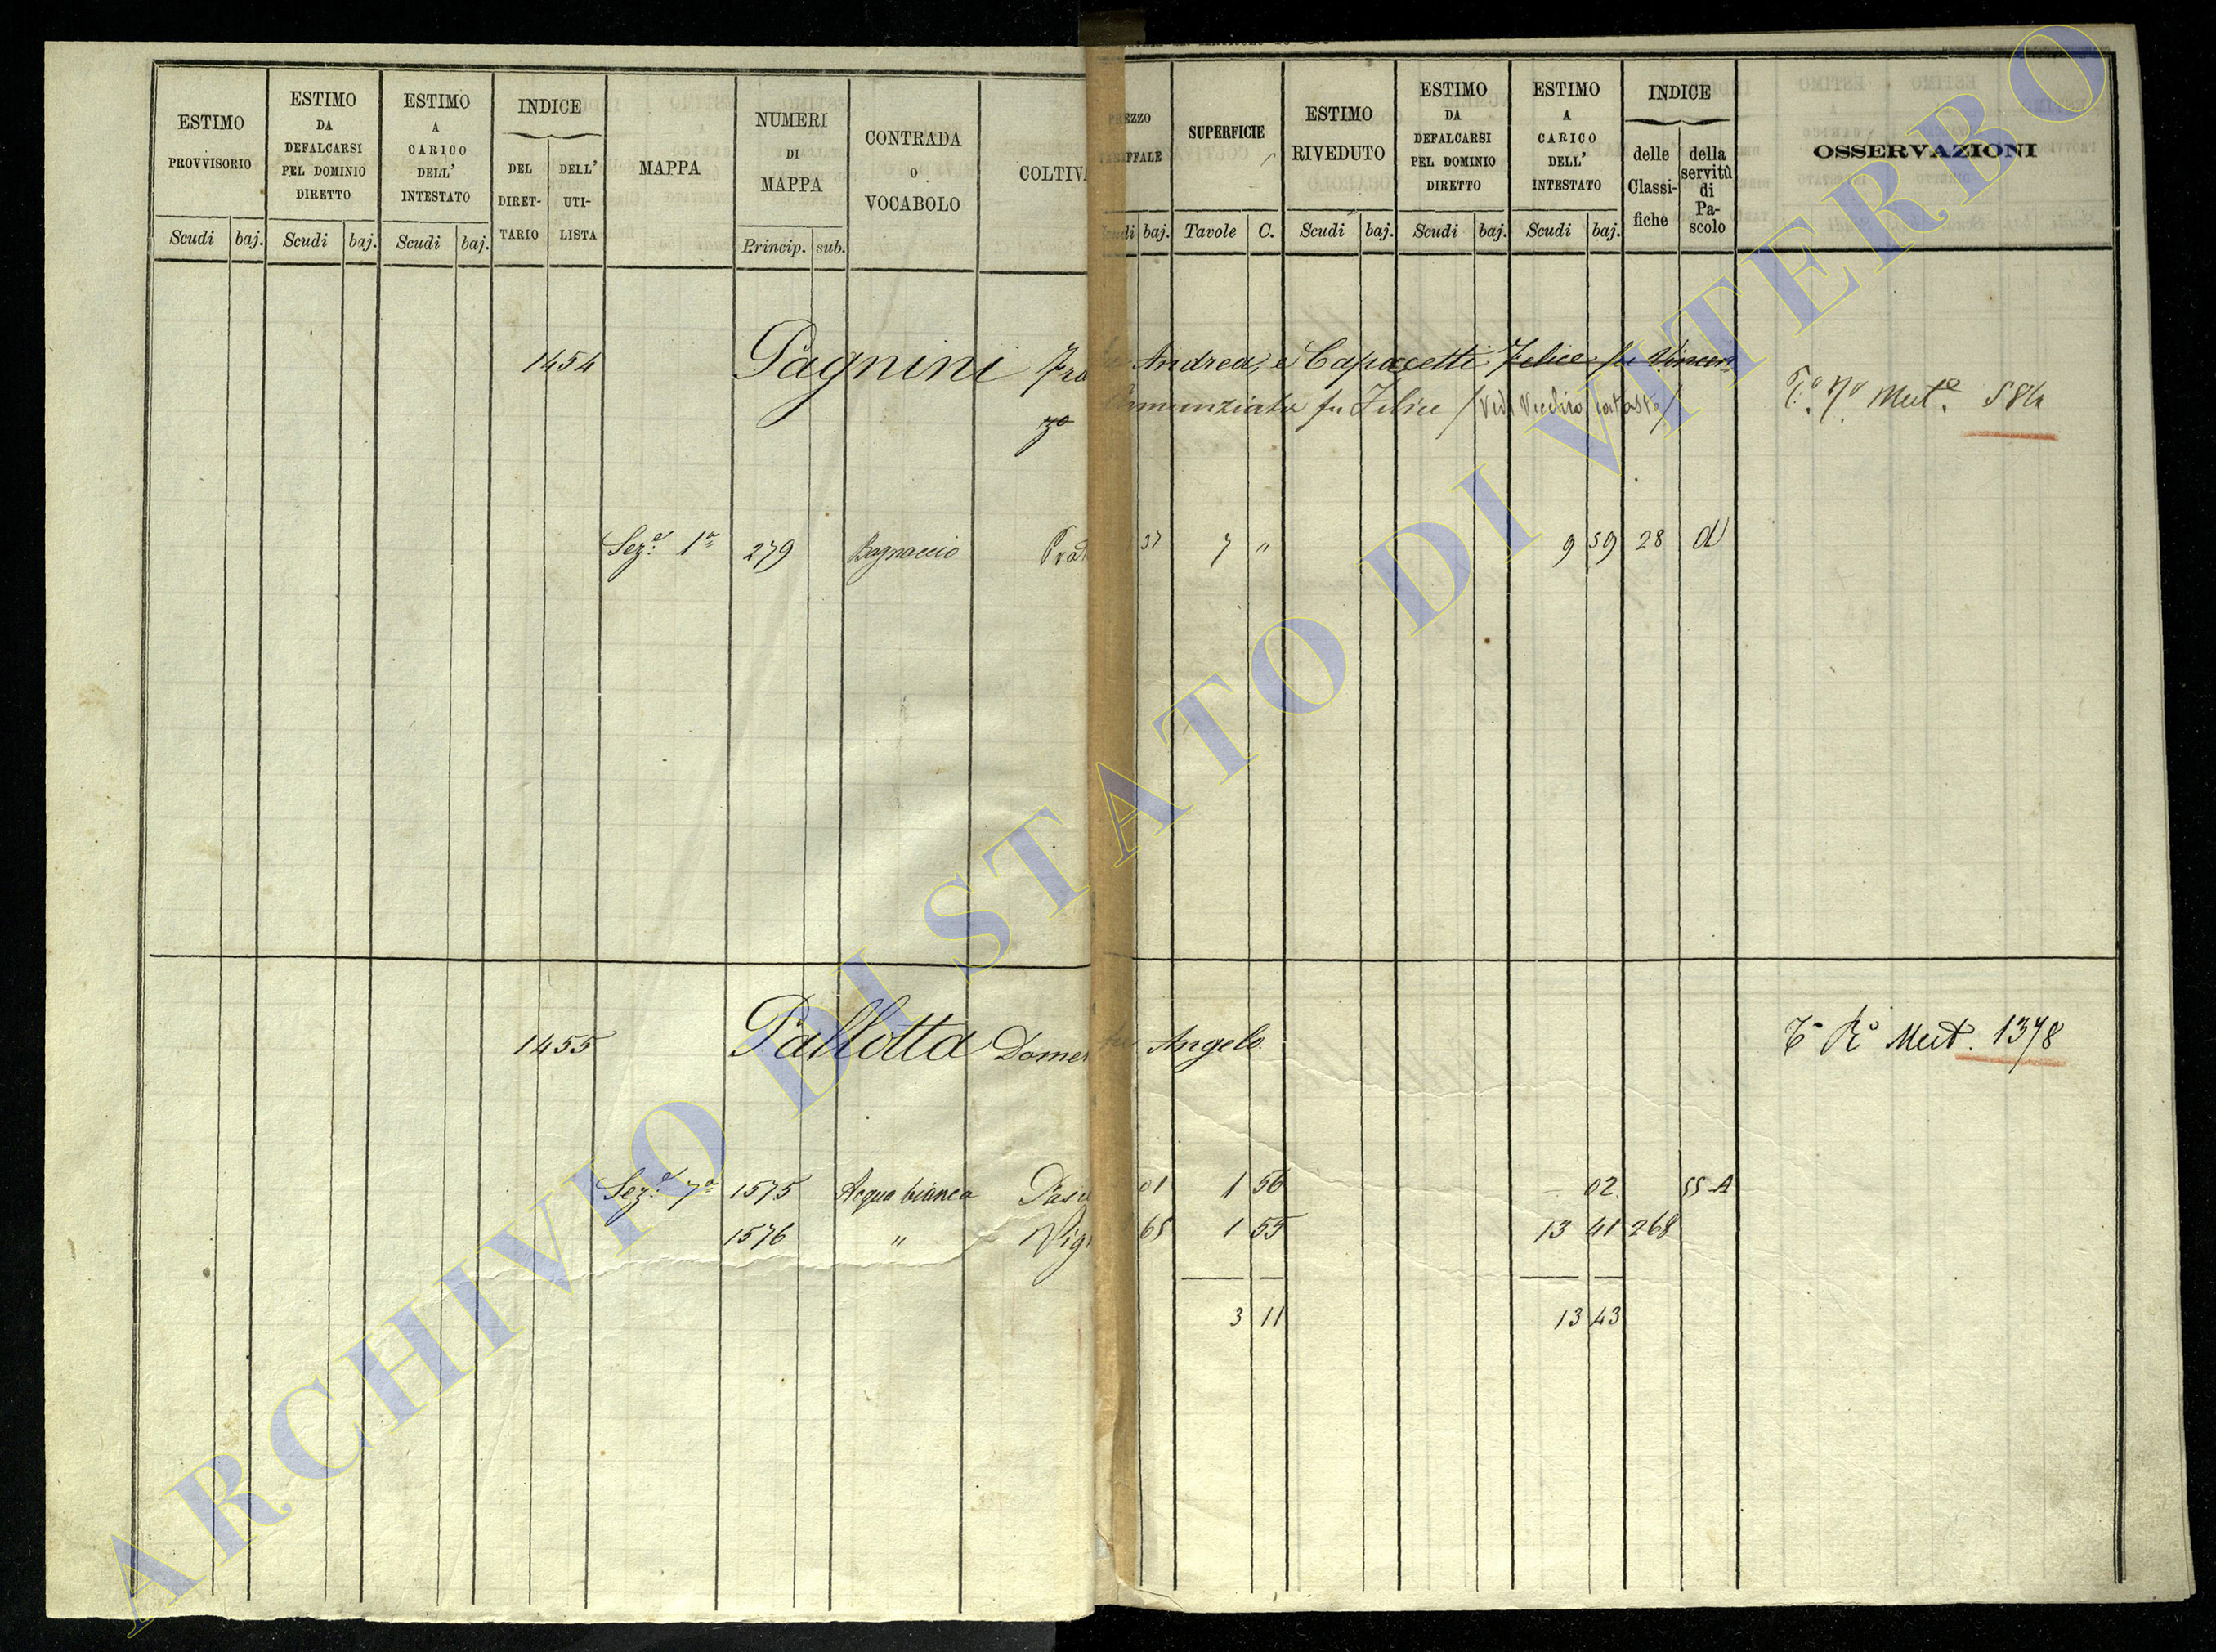 ESTIMO PROVVISORIO
ESTIMO DA DEFALCARSI PEL DOMINIO DIRETTO
ESTIMO A CARICO DELL' INTESTATO
INDICE
DEL DIRETTARIO
DELL' UTILISTA
MAPPA
NUMERI DI MAPPA
CONTRADA O VOCABOLO
COLTIVA
Scudi baj. Scudi baj. Scudi baj.
Princip. sub.
SUPERFICIE
ESTIMO RIVEDUTO
ESTIMO DA DEFALCARSI PEL DOMINIO DIRETTO
ESTIMO A CARICO DELL' INTESTATO
INDICE
delle Classifiche
della servitù di Pascolo
OSSERVAZIONI
baj. Tavole C. Scudi baj. Scudi baj. Scudi baj.
1454 Pagnini Fra Andrea, e Capacetti Felice fu Vincen
zo
fu Felice (Vedi Vecchio Catasto)
Mut.e 584
Sez.e 1a 279 Bagnaccio Prat 37 7 " 9 59 28 d
1455 Pallotta Domen fu Angelo
Mut. 1378
Sez.e 7a 1575 Acqua bianca Pasc 01 1 56 02 55 A
1576 " Vig 65 1 55 13 41 268
3 11 13 43
ARCHIVIO DI STATO DI VITERBO